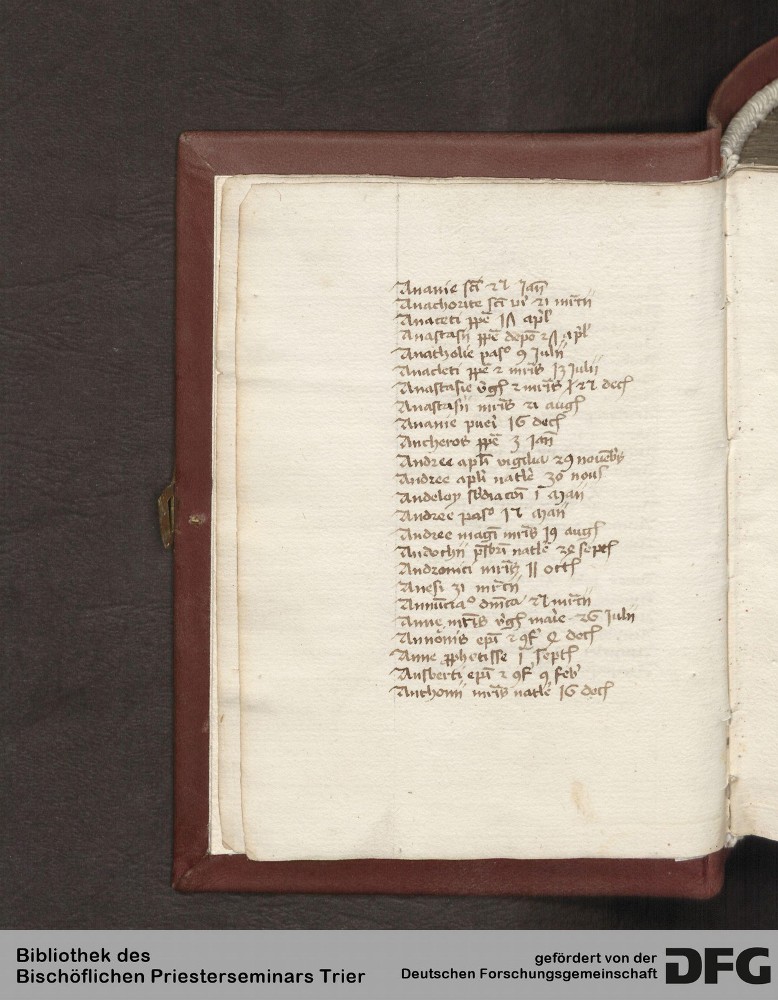 Ananie scī 25 Jan̄
Anachorite scī vi 21 mrcii
Anaceti ppē 17 apl'
Anastasii ppē depō 27 apl'
Anatholie paso 9 Julii
Anacleti ppē 2 mris 13 Julii
Anastasie vgis 2 mris 25 dec
Anastasii mris 21 aug
Ananie pueri 16 dec
Antheros ppē 3 Jan̄
Andree apli vigilia 29 nouēbs
Andree apli natle 30 nou
Andeloy sbdiacōi 1 maii
Andree paso 15 maii
Andree magni mris 19 aug
Andochii psbri natle 24 sept
Andronici mris 11 oct
Anesi 31 mrcii
Annūciao dnica 25 mrcii
Anne mris vgis marie 26 Julii
Annonis epi 2 9f 4 dec
Anne pphetisse 1 sept
Ansberti epi 2 9f 9 feb
Anthonii mris natle 16 dec
Bibliothek des
Bischöflichen Priesterseminars Trier
gefördert von der
Deutschen Forschungsgemeinschaft
DFG